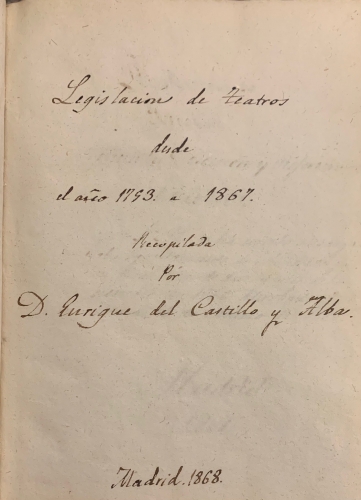 Legislacion de teatros
desde
el año 1753. a 1867.
Recopilada
Por
D. Enrique del Castillo y Alba.
Madrid. 1868.